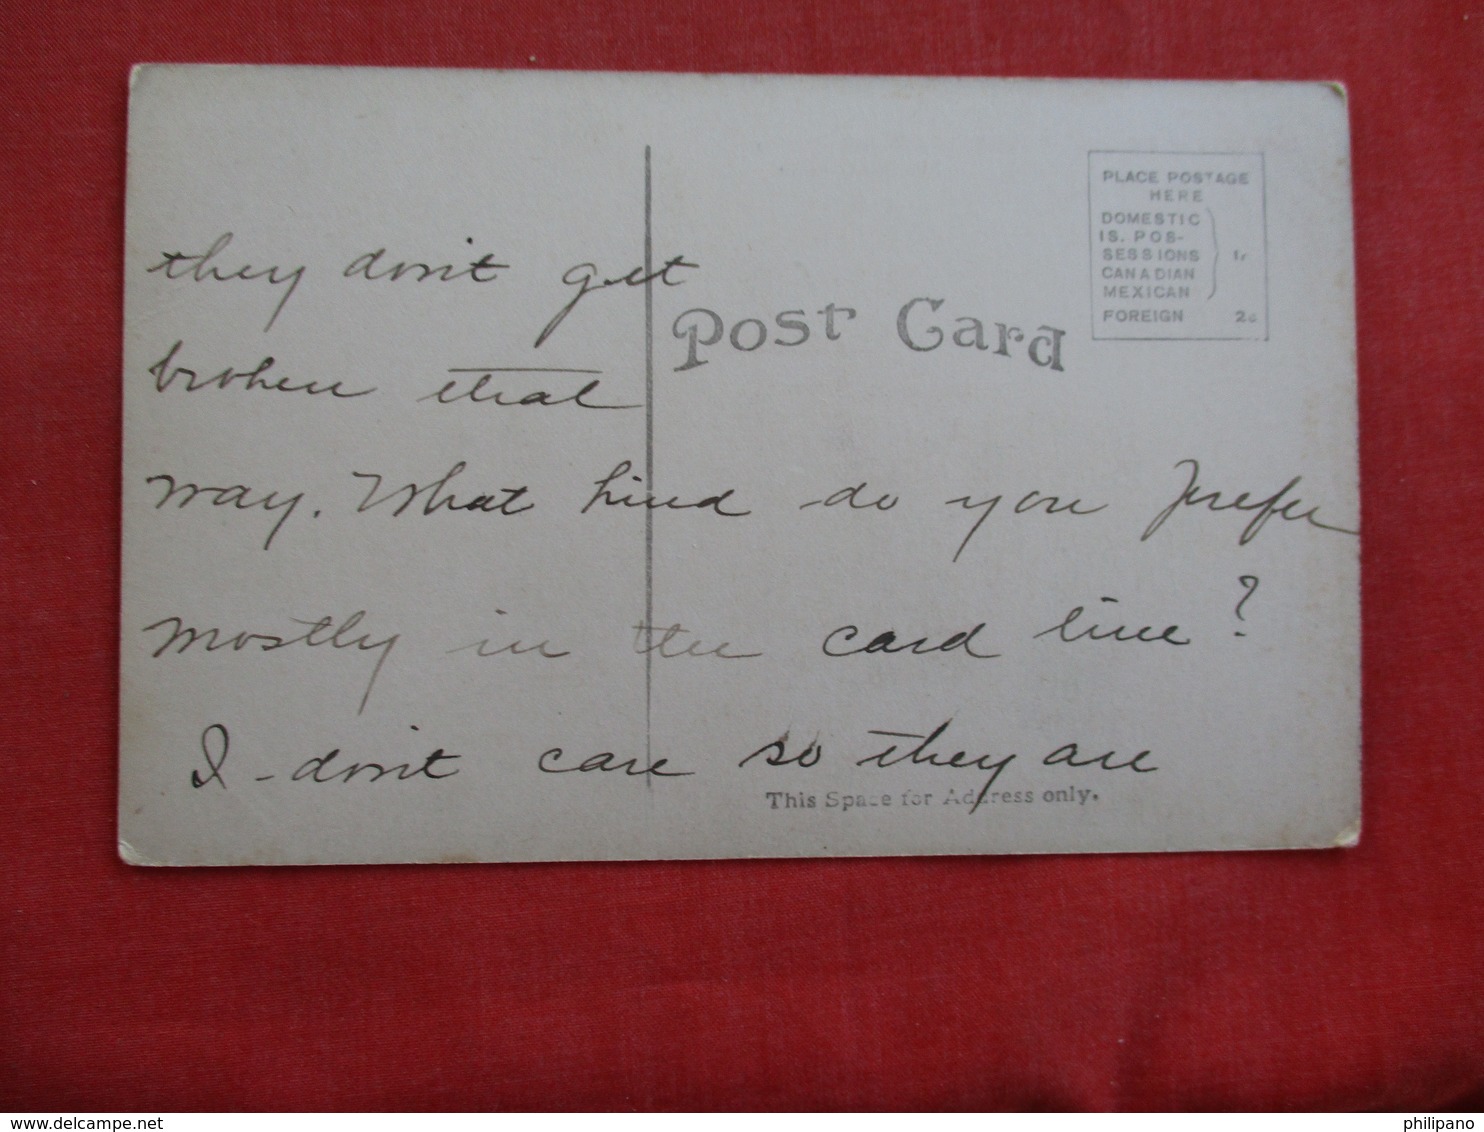 they don't get
broken that
way. What kind do you prefer
mostly in the card line?
I don't care so they are
Post Card
PLACE POSTAGE
HERE
DOMESTIC
IS. POS-
SESSIONS
CANADIAN
MEXICAN
1c
FOREIGN 2c
This Space for Address only.
www.delcampe.net
philipano